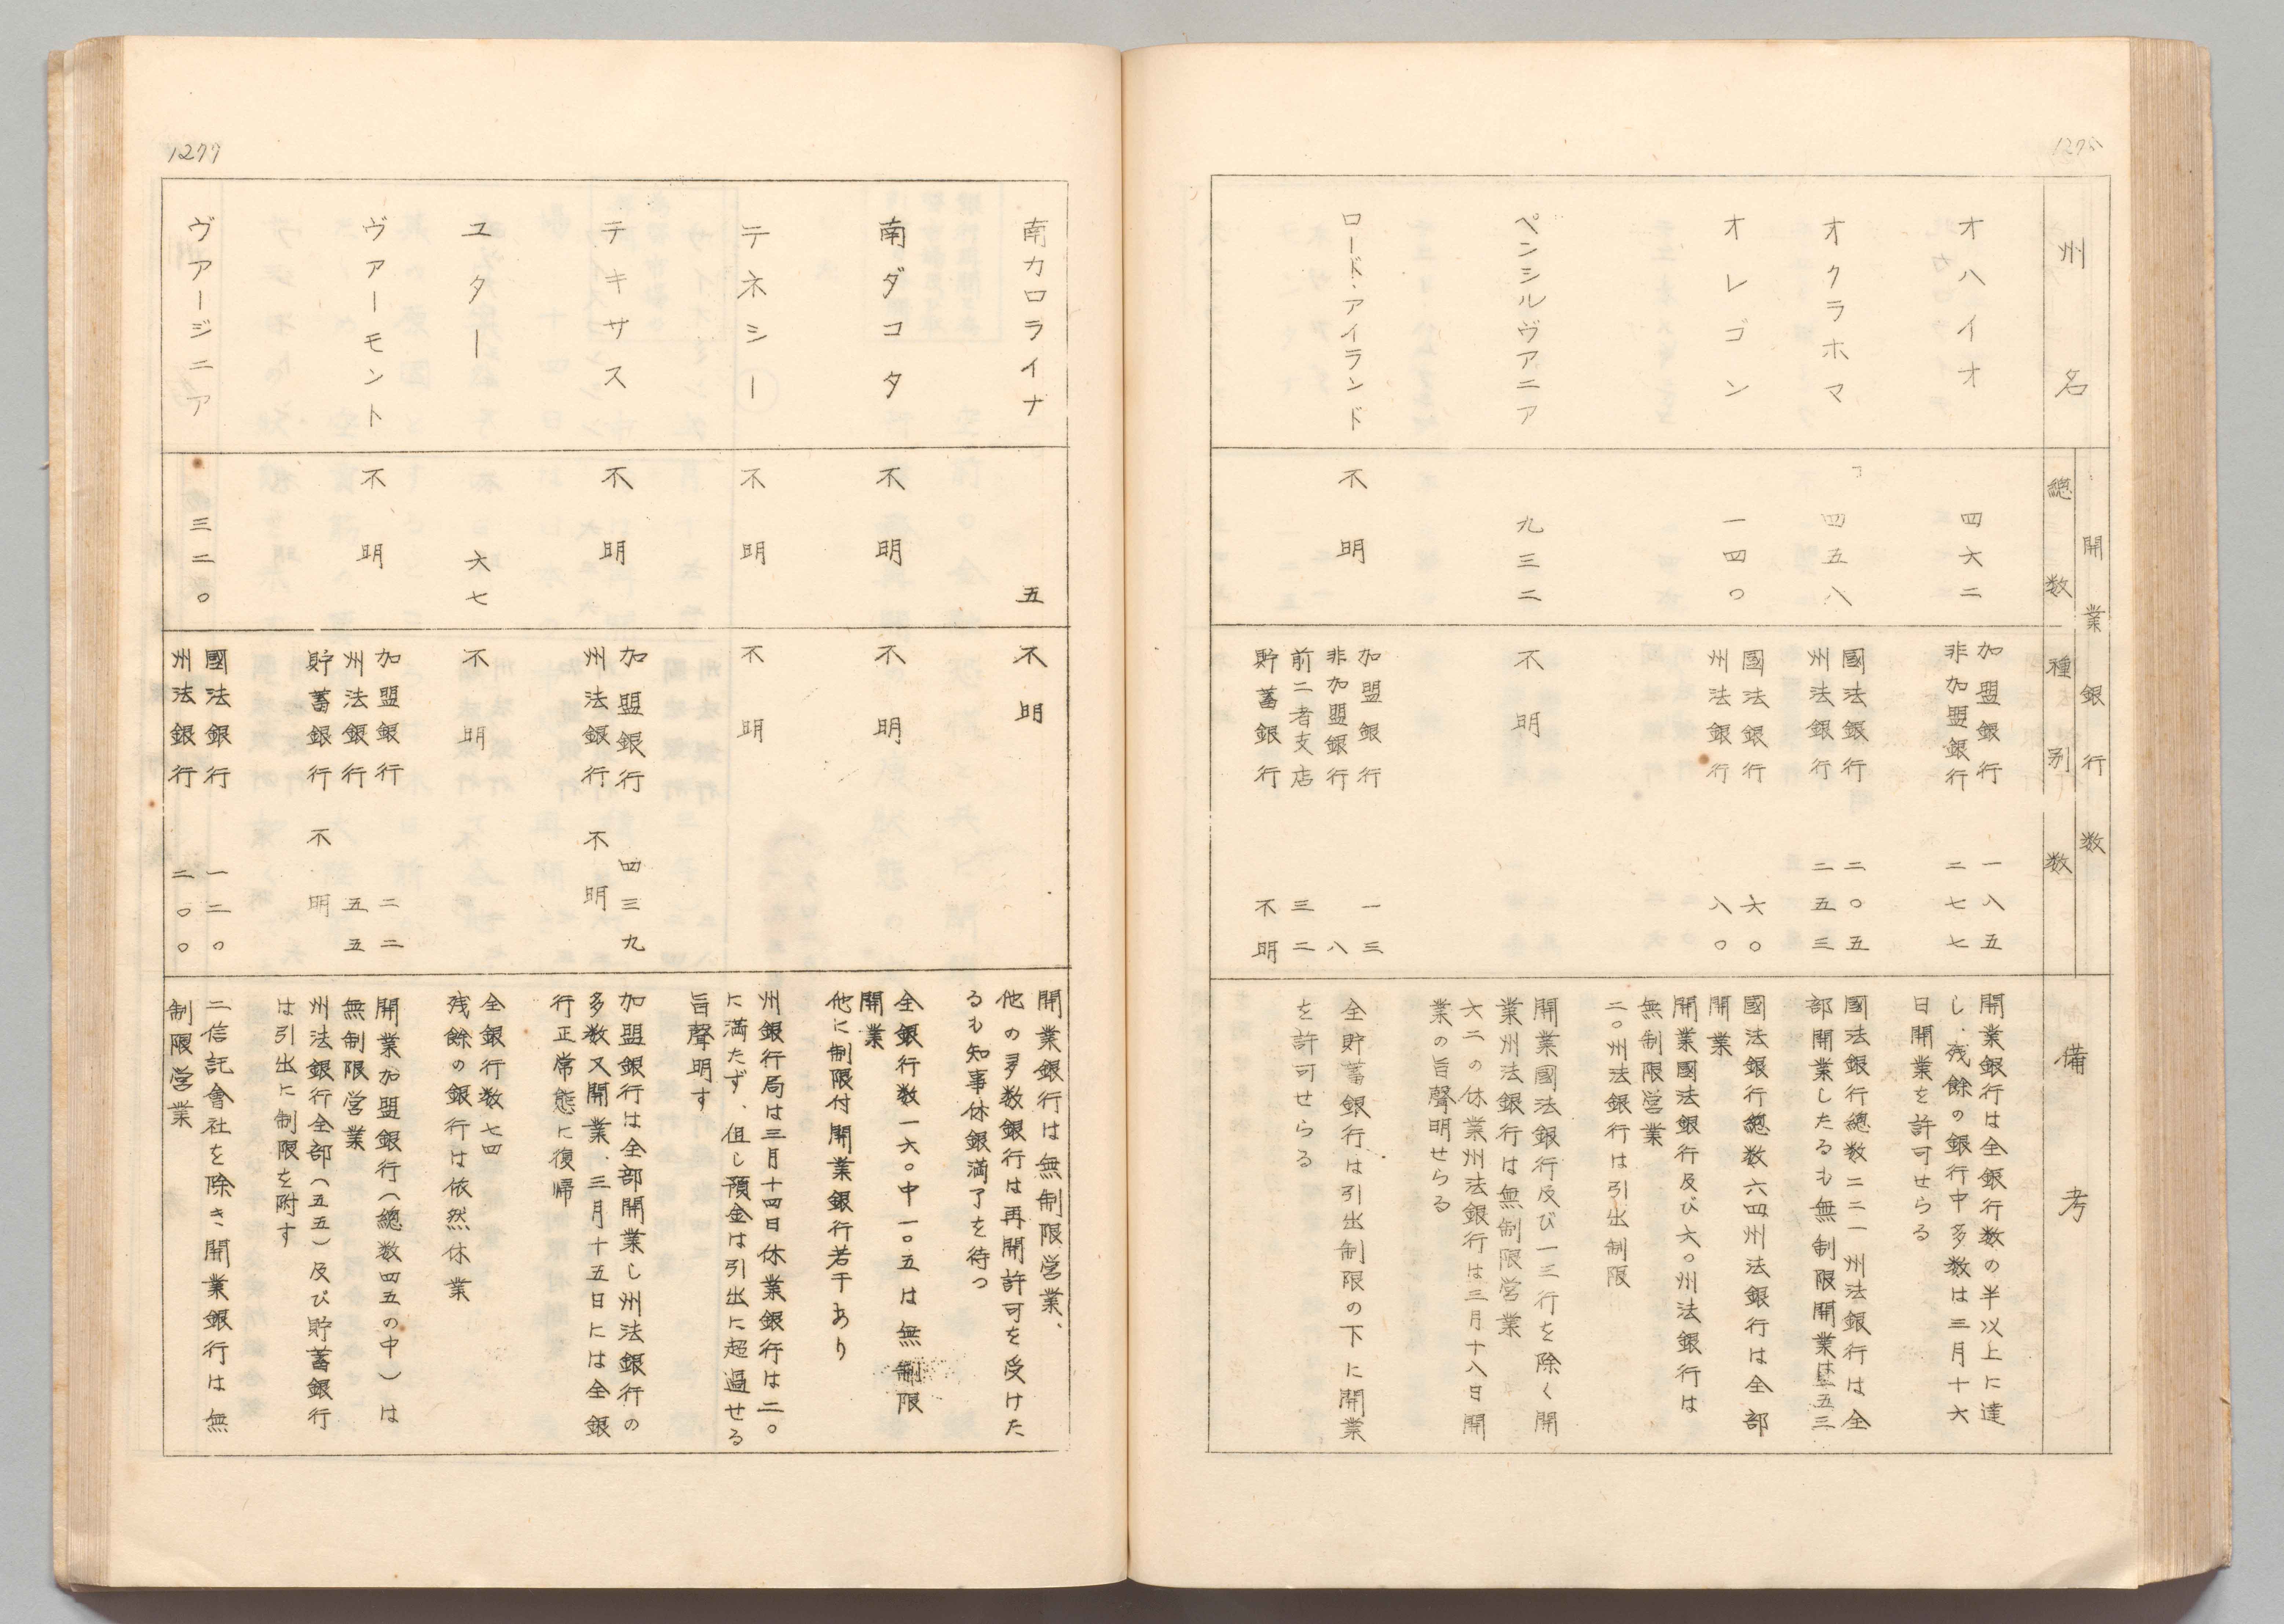 州名
開業銀行数
總数
種別数
備考
オハイオ
四六二
加盟銀行 一八五
非加盟銀行 二七七
開業銀行は全銀行数の半以上に達
し、残餘の銀行中多数は三月十六
日開業を許可せらる
オクラホマ
四五八
國法銀行 二〇五
州法銀行 二五三
國法銀行總数二二一 州法銀行は全
部開業したるも無制限開業は五三
オレゴン
一四〇
國法銀行 六〇
州法銀行 八〇
國法銀行總数六四州法銀行は全部
開業
開業國法銀行及び六〇州法銀行は
無制限営業
二〇州法銀行は引出制限
ペンシルヴアニア
九三二
不明
開業國法銀行及び一三行を除く開
業州法銀行は無制限営業
六二の休業州法銀行は三月十八日開
業の旨聲明せらる
ロード・アイランド
不明
加盟銀行 一三
非加盟銀行 八
前二者支店 三二
貯蓄銀行 不明
全貯蓄銀行は引出制限の下に開業
を許可せらる
1277
南カロライナ
五
不明
開業銀行は無制限営業、
他の多数銀行は再開許可を受けた
るも知事休銀満了を待つ
南ダコタ
不明
不明
全銀行数一六〇中一〇五は無制限
開業
他に制限付開業銀行若干あり
テネシー
不明
不明
州銀行局は三月十四日休業銀行は二〇
に満たず、但し預金は引出に超過せる
旨聲明す
テキサス
不明
加盟銀行 四三九
州法銀行 不明
加盟銀行は全部開業し州法銀行の
多数又開業、三月十五日には全銀
行正常態に復帰
ユター
六七
不明
全銀行数七四
残餘の銀行は依然休業
ヴアーモント
不明
加盟銀行 二二
州法銀行 五五
貯蓄銀行 不明
開業加盟銀行(總数四五の中)は
無制限営業
州法銀行全部(五五)及び貯蓄銀行
は引出に制限を附す
ヴアージニア
三二〇
國法銀行 一二〇
州法銀行 二〇〇
二信託會社を除き、開業銀行は無
制限営業